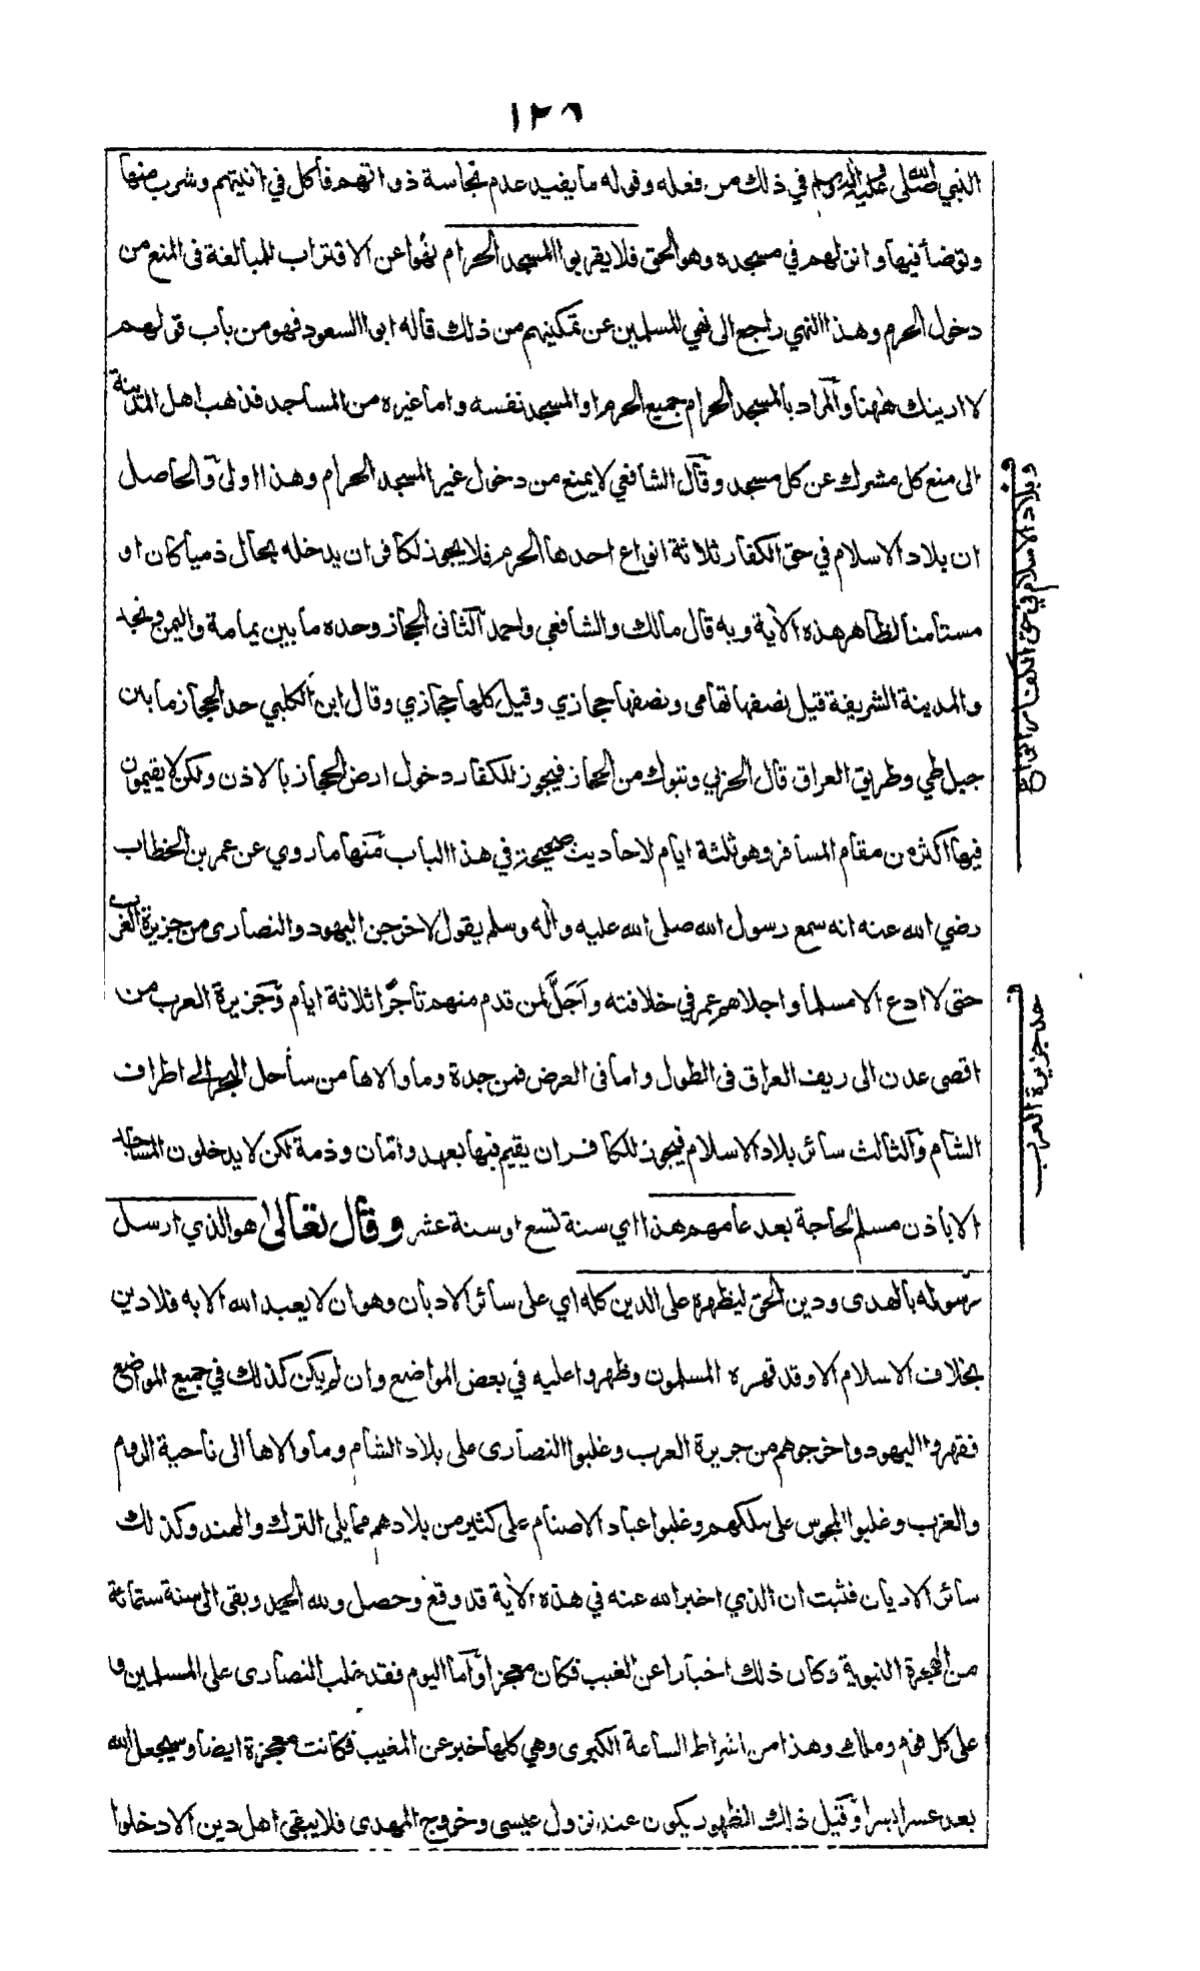 ١٢٦
النبي صلى الله عليه وسلم في ذلك من فعله وقوله ما يفيد عدم نجاسة ذواتهم فأكل في انيتهم وشرب منها
وتوضأ فيها وانزلهم في مسجده وهو الحق فلا يقربوا المسجد الحرام نهوا عن الاقتراب للمبالغة في المنع من
دخول الحرم وهذا النهي راجع الى نهي المسلمين عن تمكينهم من ذلك قاله ابو السعود فهو من باب قولهم
لا ارينك ههنا والمراد بالمسجد الحرام جميع الحرم او المسجد نفسه واما غيره من المساجد فذهب اهل المدينة
الى منع كل مشرك عن كل مسجد وقال الشافعي لا يمنع من دخول غير المسجد الحرام وهذا اولى والحاصل
ان بلاد الاسلام في حق الكفار ثلاثة انواع احدها الحرم فلا يجوز لكافر ان يدخله بحال ذميا كان او
مستأمنا لظاهر هذه الأية وبه قال مالك والشافعي واحمد الثانى الحجاز وحده ما بين يمامة واليمن ونجد
والمدينة الشريفة قيل نصفها تهامى ونصفها حجازي وقيل كلها حجازي وقال ابن الكلبي حد الحجاز ما بين
جبل طي وطريق العراق قال الحربي وتبوك من الحجاز فيجوز للكفار دخول ارض الحجاز بالاذن ولكن لا يقيمون
فيها اكثر من مقام المسافر وهو ثلثة ايام لاحاديث صحيحة في هذا الباب منها ما روي عن عمر بن الخطاب
رضي الله عنه انه سمع رسول الله صلى الله عليه واله وسلم يقول لاخرجن اليهود والنصارى من جزيرة العرب
حتى لا ادع الا مسلما واجلاهم عمر في خلافته واجل لمن قدم منهم تاجرا ثلاثة ايام وجزيرة العرب من
اقصى عدن الى ريف العراق في الطول واما في العرض فمن جدة وما والاها من ساحل البحر الى اطراف
الشام والثالث سائر بلاد الاسلام فيجوز للكافر ان يقيم فيها بعهد وامان وذمة لكن لا يدخلون المساجد
الا باذن مسلم لحاجة بعد عامهم هذا اي سنة تسع او سنة عشر وقال تعالى هو الذي ارسل
رسوله بالهدى ودين الحق ليظهره على الدين كله اي على سائر الاديان وهو ان لا يعبد الله الا به فلا دين
بخلاف الاسلام الا وقد قهره المسلمون وظهروا عليه في بعض المواضع وان لم يكن كذلك في جميع المواضع
فقهروا اليهود واخرجوهم من جزيرة العرب وغلبوا النصارى على بلاد الشام وما والاها الى ناحية الروم
والغرب وغلبوا المجوس على ملكهم وغلبوا عباد الاصنام على كثير من بلادهم مما يلي الترك والهند وكذلك
سائر الاديان فثبت ان الذي اخبر الله عنه في هذه الأية قد وقع وحصل ولله الحمد وبقى الى سنة ستمائة
من الهجرة النبوية وكان ذلك اخبارا عن الغيب فكان معجزا واما اليوم فقد غلب النصارى على المسلمين
على كل وملك وهذا من اشراط الساعة الكبرى وهي كلها خبر عن المغيب فكانت معجزة ايضا وسيجعل الله
بعد عسر يسرا وقيل ذلك الظهور يكون عند نزول عيسى وخروج المهدى فلا يبقى اهل دين الا دخلوا
بلاد الاسلام في حق الكفار انواع
حد جزيرة العرب